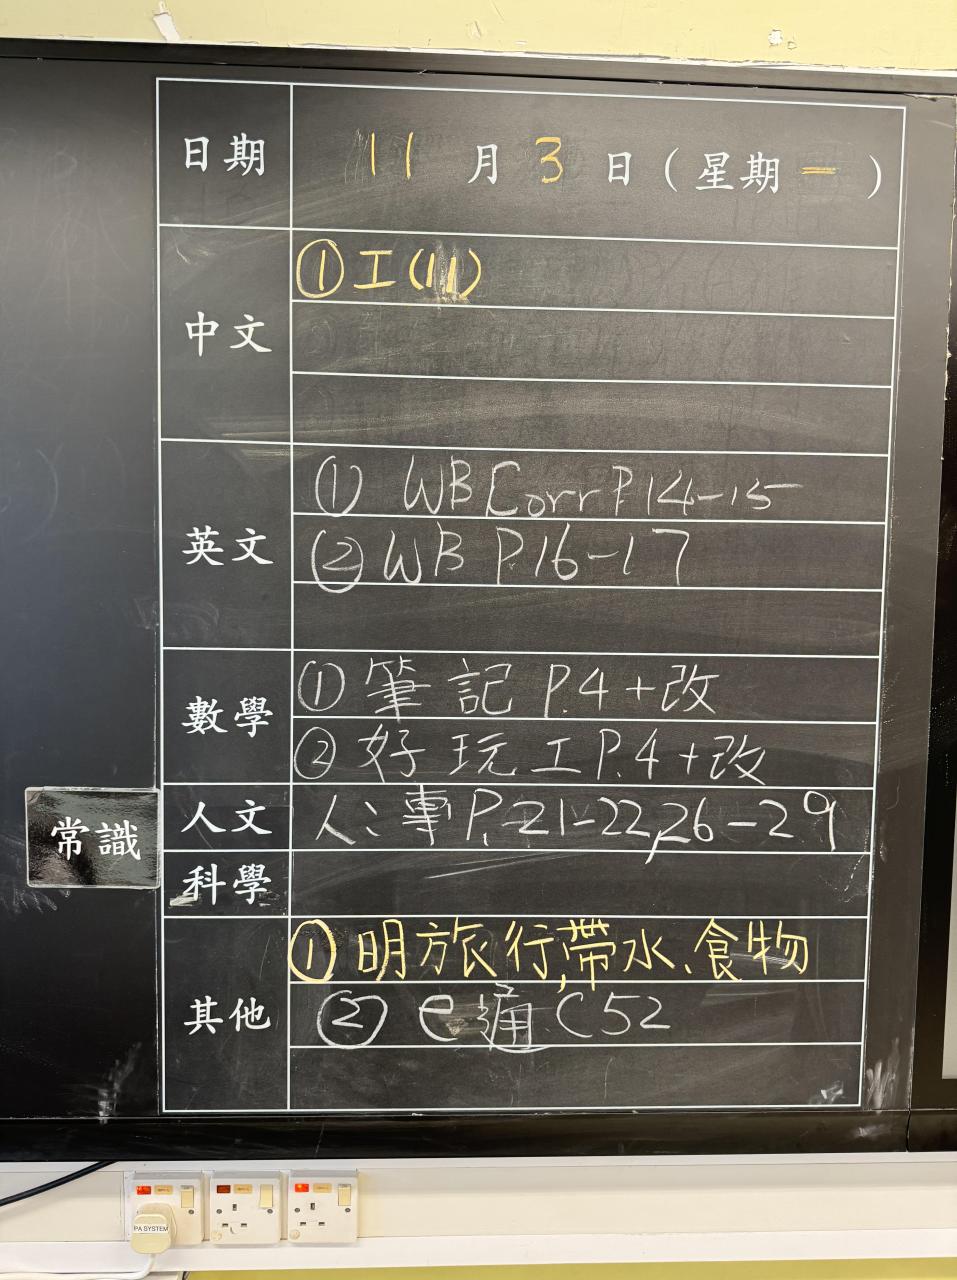 日期 11 月 3 日 ( 星期 一 )
中文
① 工(11)
英文
① WB Corr P.14-15
② WB P.16-17
數學
① 筆記 P.4 + 改
② 好玩工 P.4 + 改
常識
人文 人:專 P.21-22,26-29
科學
其他
① 明旅行,帶水、食物
② e通 C52
PA SYSTEM